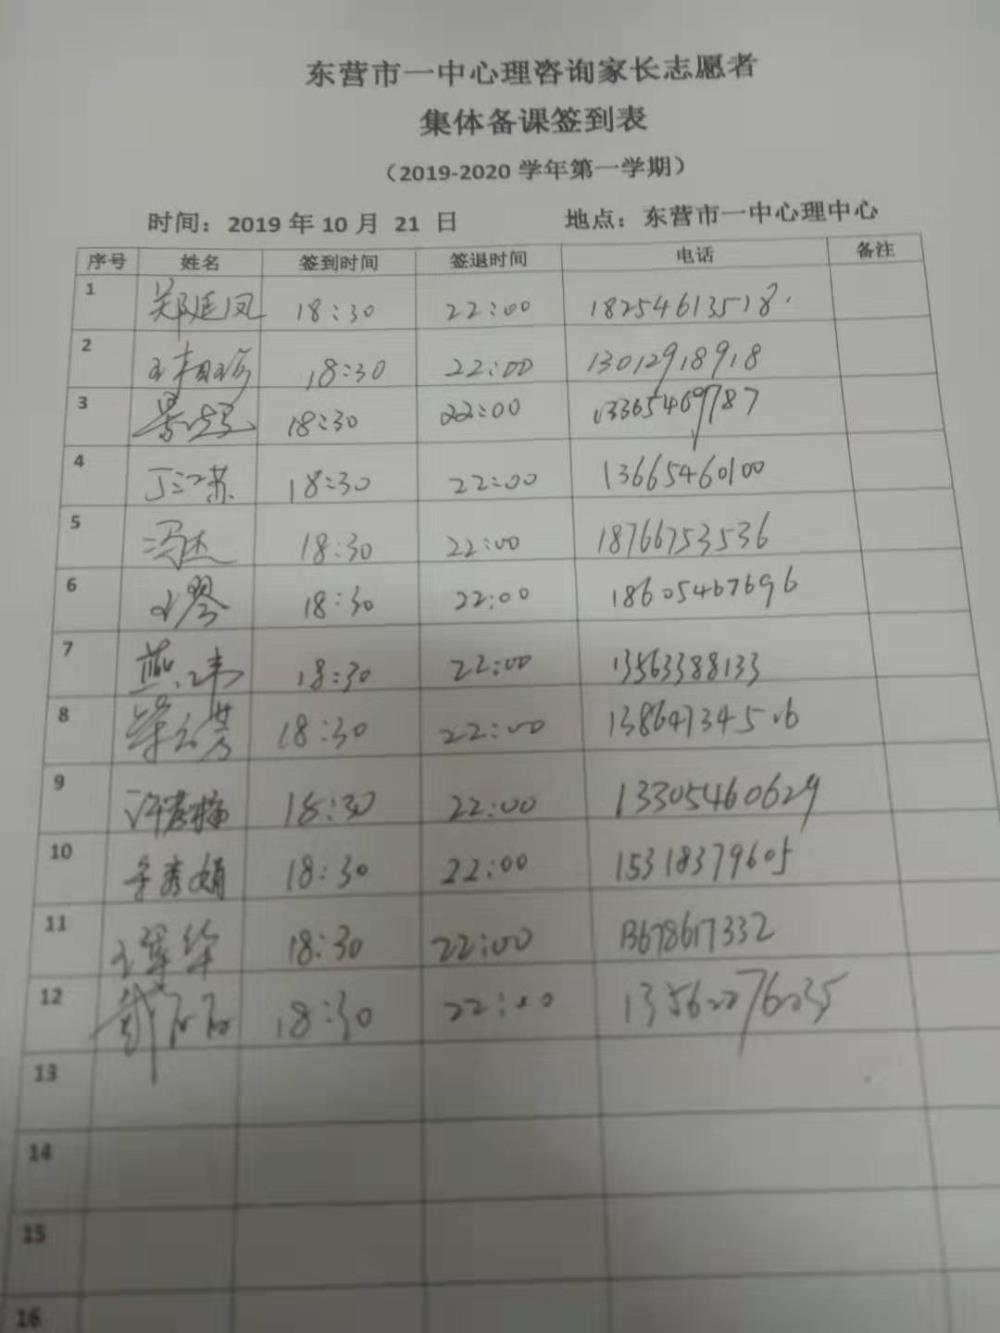 东营市一中心理咨询家长志愿者
集体备课签到表
（2019-2020 学年第一学期）
时间：2019 年 10 月 21 日 地点：东营市一中心理中心
序号 姓名 签到时间 签退时间 电话 备注
1 郑延凤 18:30 22:00 18254613518
2 18:30 22:00 13012918918
3 18:30 22:00 13365469787
4 丁江苏 18:30 22:00 13665460100
5 冯杰 18:30 22:00 18766753536
6 王琴 18:30 22:00 18605467696
7 燕 18:30 22:00 13563388133
8 18:30 22:00 13864734506
9 许 18:30 22:00 13305460629
10 秀娟 18:30 22:00 15318379605
11 王翠华 18:30 22:00 13678617332
12 18:30 22:00
13
14
15
16